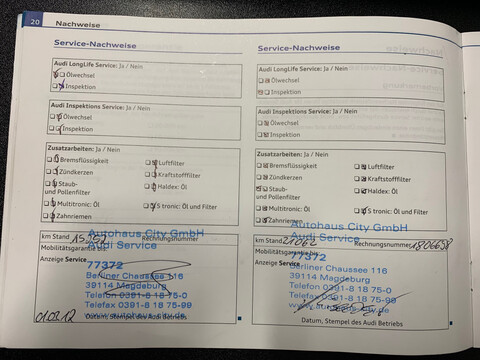 20 Nachweise
Service-Nachweise
Audi LongLife Service: Ja / Nein
Ölwechsel
Inspektion
Audi Inspektions Service: Ja / Nein
Ölwechsel
Inspektion
Zusatzarbeiten: Ja / Nein
Bremsflüssigkeit
Luftfilter
Zündkerzen
Kraftstofffilter
Staub-
und Pollenfilter
Haldex: Öl
Multitronic: Öl
S tronic: Öl und Filter
Zahnriemen
Autohaus City GmbH
km Stand
Rechnungsnummer
Audi Service
Mobilitätsgarantie bis
Anzeige Service
77372
Berliner Chaussee 116
39114 Magdeburg
Telefon 0391-8 18 75-0
Telefax 0391-8 18 75-99
www.autohaus-city.de
Datum, Stempel des Audi Betriebs
Service-Nachweise
Audi LongLife Service: Ja / Nein
Ölwechsel
Inspektion
Audi Inspektions Service: Ja / Nein
Ölwechsel
Inspektion
Zusatzarbeiten: Ja / Nein
Bremsflüssigkeit
Luftfilter
Zündkerzen
Kraftstofffilter
Staub-
und Pollenfilter
Haldex: Öl
Multitronic: Öl
S tronic: Öl und Filter
Zahnriemen
Autohaus City GmbH
Audi Service
km Stand
Rechnungsnummer
Mobilitätsgarantie bis
Anzeige Service
77372
Berliner Chaussee 116
39114 Magdeburg
Telefon 0391-8 18 75-0
Telefax 0391-8 18 75-99
www.autohaus-city.de
Datum, Stempel des Audi Betriebs